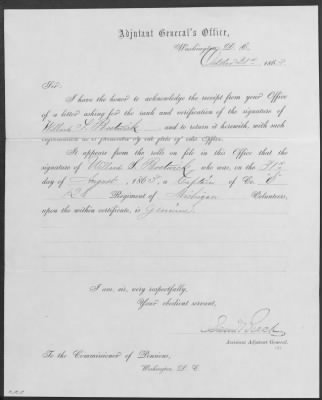 Adjutant General's Office,
Washington, D. C.
186
Sir:
I have the honor to acknowledge the receipt from your Office
of a letter asking for the rank and verification of the signature of
Willard S. Bostwick and to return it herewith, with such
information as is furnished by the files of this Office.
It appears from the rolls on file in this Office that the
signature of Willard S. Bostwick who was, on the
day of August, 186 , a Captain of Co.
Regiment of Michigan Volunteers,
upon the within certificate, is genuine.
I am, sir, very respectfully,
Your obedient servant,
Assistant Adjutant General.
To the Commissioner of Pensions,
Washington, D. C.